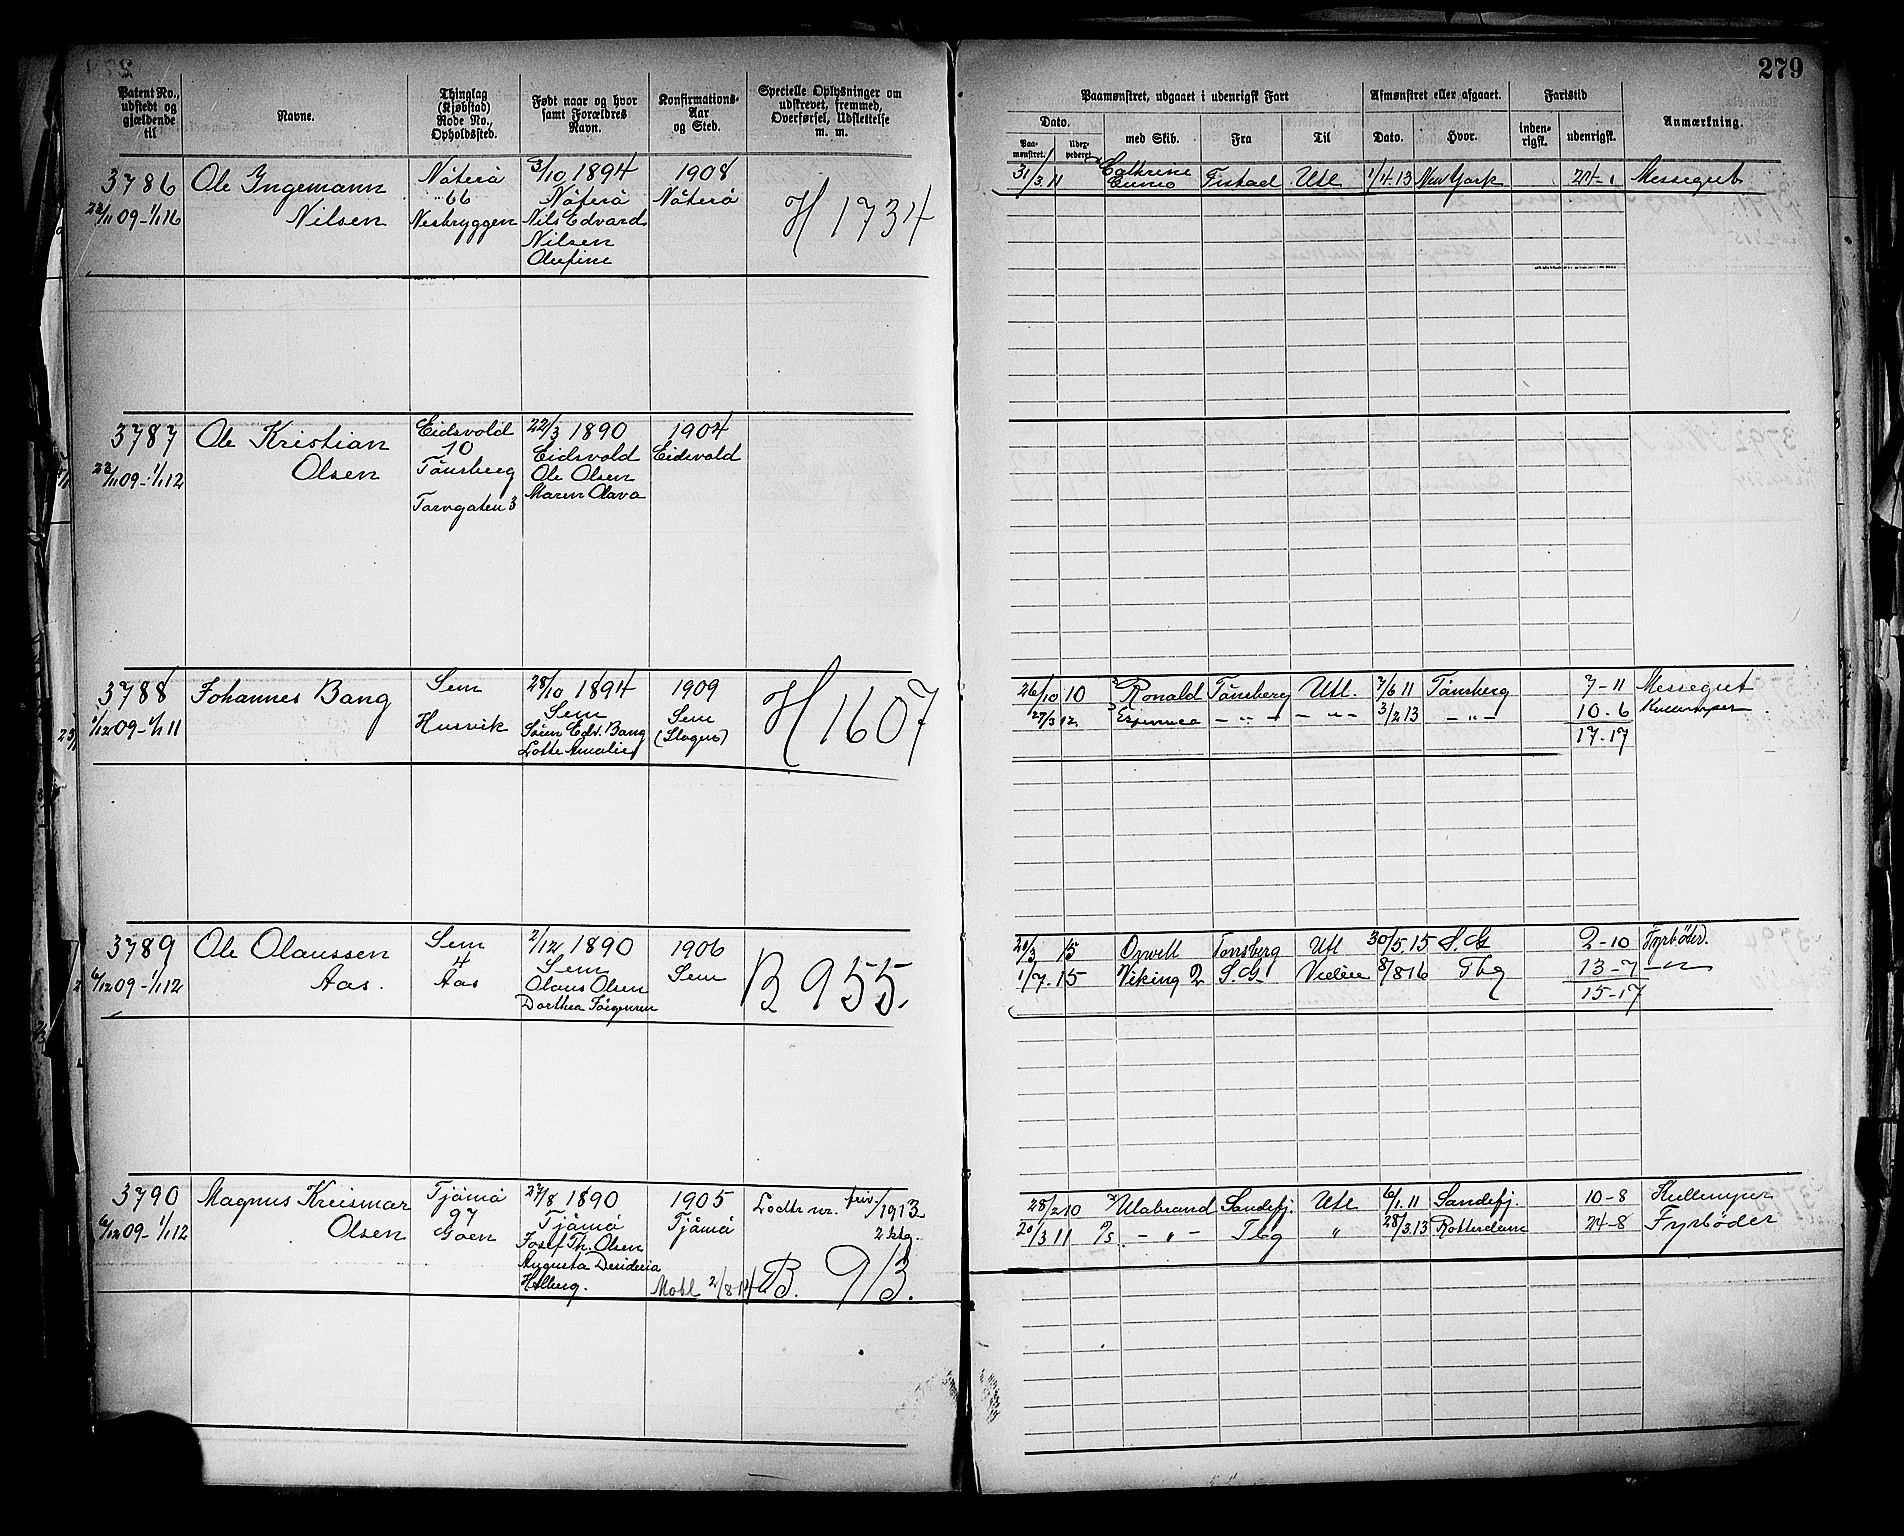 279
Patent No., udstedt og gjældende til
Navne.
Thinglag (Kjøbstad) Rode No., Opholdssted.
Født naar og hvor samt Forældres Navn.
Konfirmations-Aar og Sted.
Specielle Oplysninger om udskrevet, fremmed, Overførsel, Udslettelse m. m.
Paamønstret, udgaaet i udenrigsk Fart
Afmønstret eller afgaaet.
Fartstid
Anmærkning.
Dato.
med Skib.
Fra
Til
Dato.
Hvor.
inden-rigsk.
udenrigsk.
Paa-mønstret.
3786 Ole Ingemann Nøterø 3/10 1894 1908
66 Nøterø Nøterø
22/11 09-1/1 16 Nilsen Nesbryggen Nils Edvard H 1734
Nilsen
Olufine
31/3.11 Cathrine Fistad Utl 1/4.13 New York 24-1 Messegut
3787 Ole Kristian Eidsvold 22/3 1890 1904
10 Eidsvold Eidsvold
23/11 09-1/1 12 Olsen Tønsberg Ole Olsen
Maren Olava
Torvgaten 3
3788 Johannes Bang Sem 28/10 1894 1909 H 1607
Sem Sem
1/12 09-1/1 11 Husvik Søren Edv. Bang (Slagen)
Lotte Amalie
26/10 10 Ronald Tønsberg Utl. 7/6 11 Tønsberg 7-11 Messegut
27/3 12 - „ - - „ - 3/2 13 - „ - 10-6
17-17
3789 Ole Olaussen Sem 2/12 1890 1906
4 Sem Sem B 955.
6/12 09-1/1 12 Aas. Aas Olaus Olsen
Dorthea Jørgensen
20/3 15 Orwell Tønsberg Utl 30/5.15 2-10 Fyrbøder.
1/7.15 Viking 2 8/8 16 Tbg 13-7 - „ -
15-17
3790 Magnus Kreismar Tjømø 27/8 1890 1905 Lodtr nr. friv./1913
97 Tjømø Tjømø 2 ktg.
6/12 09-1/1 12 Olsen Goen Josef Th. Olsen
Augusta Desideria
Holberg. Mobl 2/8-14 B. 913.
28/2 10 Ulabrand Sandefj. Utl 6/1.11 Sandefj. 10-8 Kullemper
20/3 11 - „ - Tbg „ 28/3.13 Rotterdam 24-8 Fyrbøder